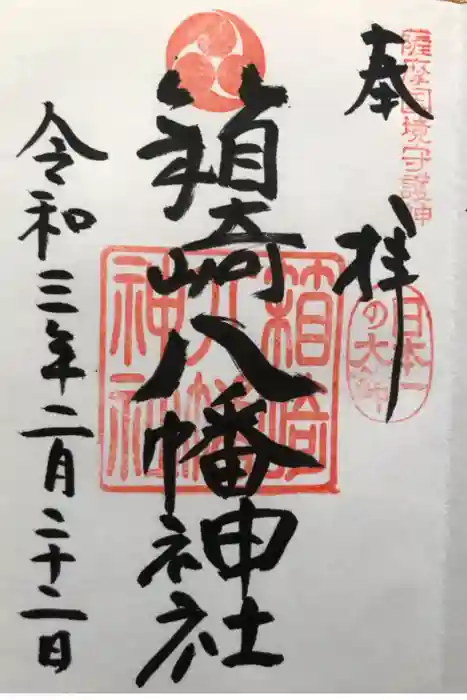 奉拝
薩摩国境守護神
日本一の大鈴
箱崎八幡神社
箱崎八幡神社
令和三年二月二十二日